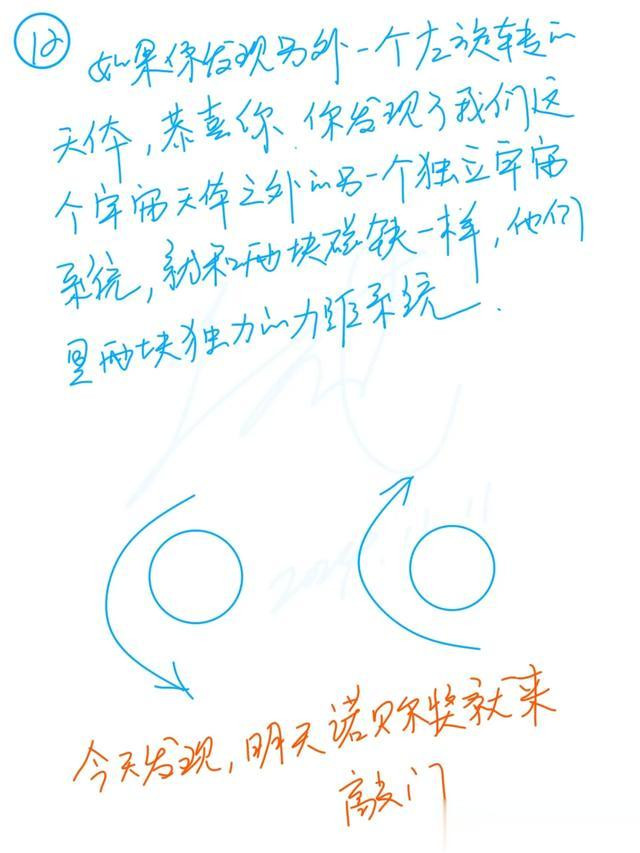 12
如果你发现另外一个左旋转的
天体，恭喜你.你发现了我们这
个宇宙天体之外的另一个独立宇宙
系统，就和两块磁铁一样，他们
是两块独力的力距系统.
2024.11.11
今天发现，明天诺贝尔奖就来
敲门